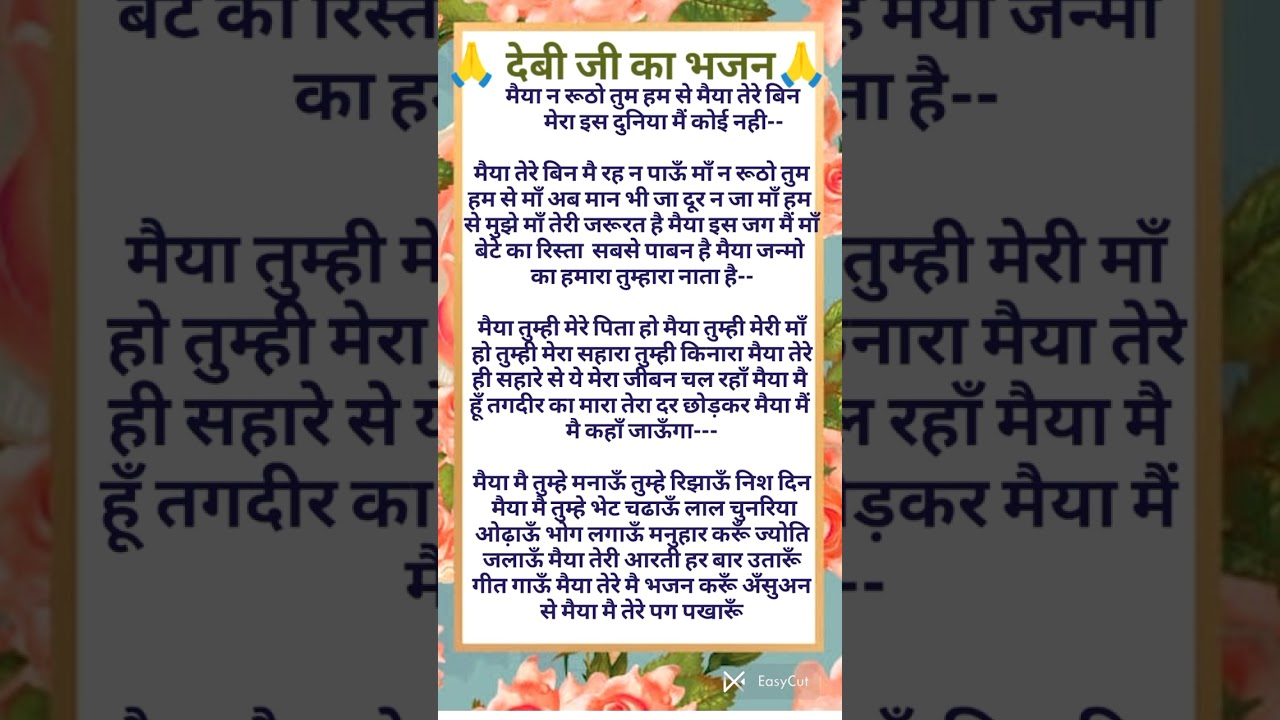 🙏 देबी जी का भजन 🙏
मैया न रूठो तुम हम से मैया तेरे बिन
मेरा इस दुनिया मैं कोई नही--
मैया तेरे बिन मै रह न पाऊँ माँ न रूठो तुम
हम से माँ अब मान भी जा दूर न जा माँ हम
से मुझे माँ तेरी जरूरत है मैया इस जग मैं माँ
बेटे का रिस्ता सबसे पाबन है मैया जन्मो
का हमारा तुम्हारा नाता है--
मैया तुम्ही मेरे पिता हो मैया तुम्ही मेरी माँ
हो तुम्ही मेरा सहारा तुम्ही किनारा मैया तेरे
ही सहारे से ये मेरा जीबन चल रहाँ मैया मै
हूँ तगदीर का मारा तेरा दर छोड़कर मैया मैं
मै कहाँ जाऊँगा---
मैया मै तुम्हे मनाऊँ तुम्हे रिझाऊँ निश दिन
मैया मै तुम्हे भेट चढाऊँ लाल चुनरिया
ओढ़ाऊँ भोग लगाऊँ मनुहार करूँ ज्योति
जलाऊँ मैया तेरी आरती हर बार उतारूँ
गीत गाऊँ मैया तेरे मै भजन करूँ अँसुअन
से मैया मै तेरे पग पखारूँ
EasyCut